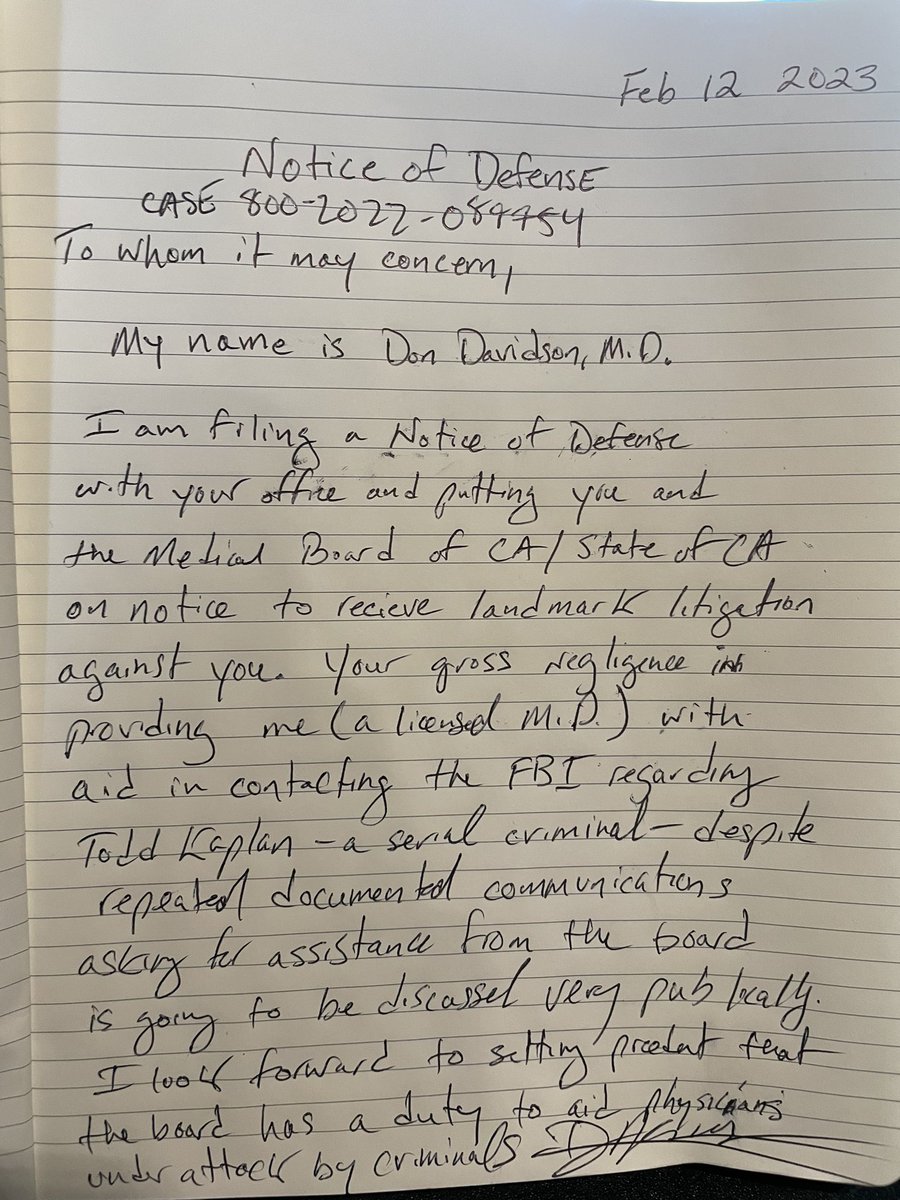 Feb 12 2023
Notice of Defense
CASE 800-2022-089754
To whom it may concern,
My name is Don Davidson, M.D.
I am filing a Notice of Defense
with your office and putting you and
the Medical Board of CA/State of CA
on notice to recieve landmark litigation
against you. Your gross negligence in
providing me (a licensed M.D.) with
aid in contacting the FBI regarding
Todd Kaplan - a serial criminal - despite
repeated documented communications
asking for assistance from the board
is going to be discussed very publically.
I look forward to setting precedent that
the board has a duty to aid physicians
under attack by criminals